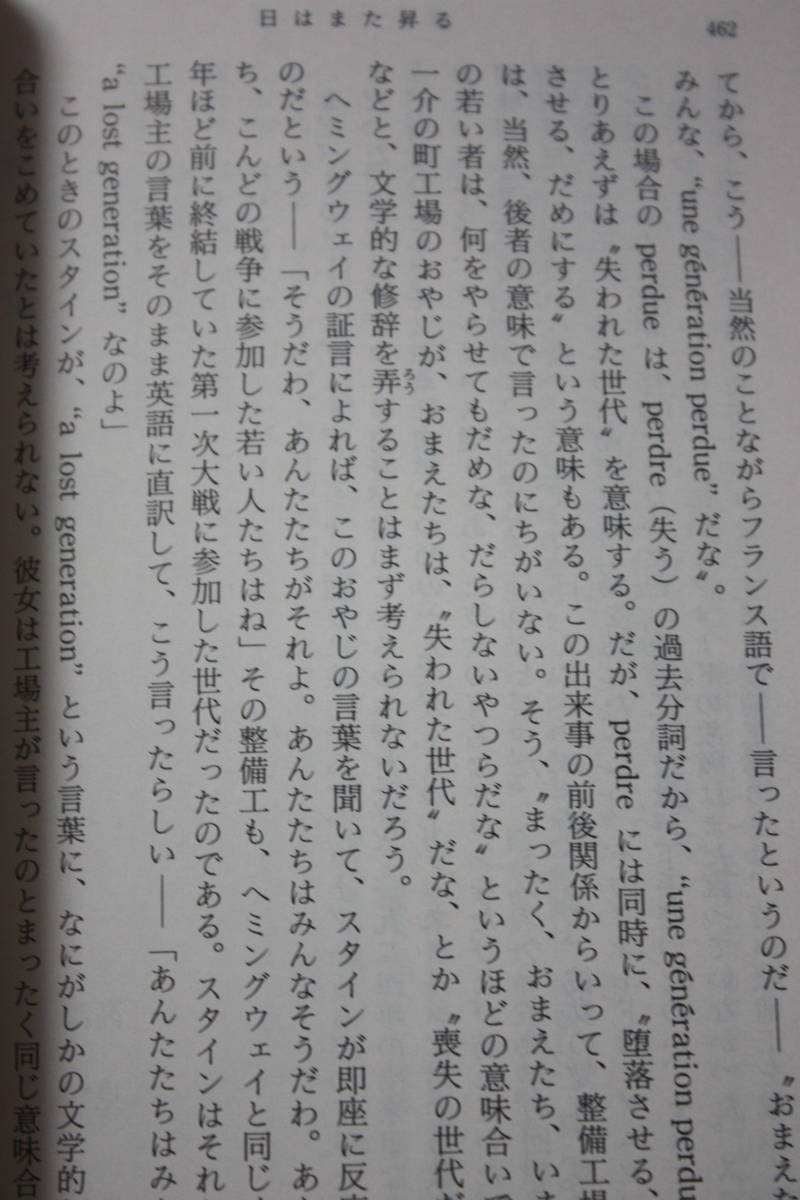 日はまた昇る
462
てから、こう――当然のことながらフランス語で――言ったというのだ――〝おまえた
みんな、“une génération perdue”だな〟。
この場合の perdue は、perdre（失う）の過去分詞だから、“une génération perdu
とりあえずは〝失われた世代〟を意味する。だが、perdre には同時に、〝堕落させる、
させる、だめにする〟という意味もある。この出来事の前後関係からいって、整備工場
は、当然、後者の意味で言ったのにちがいない。そう、〝まったく、おまえたち、いま
の若い者は、何をやらせてもだめな、だらしないやつらだな〟というほどの意味合いで
一介の町工場のおやじが、おまえたちは、〝失われた世代〟だな、とか〝喪失の世代だ
などと、文学的な修辞を弄することはまず考えられないだろう。
ろう
ヘミングウェイの証言によれば、このおやじの言葉を聞いて、スタインが即座に反応
のだという――「そうだわ、あんたたちがそれよ。あんたたちはみんなそうだわ。あ
ち、こんどの戦争に参加した若い人たちはね」その整備工も、ヘミングウェイと同じ
年ほど前に終結していた第一次大戦に参加した世代だったのである。スタインはそれ
工場主の言葉をそのまま英語に直訳して、こう言ったらしい――「あんたたちはみ
“a lost generation”なのよ」
このときのスタインが、“a lost generation”という言葉に、なにがしかの文学的
合いをこめていたとは考えられない。彼女は工場主が言ったのとまったく同じ意味合